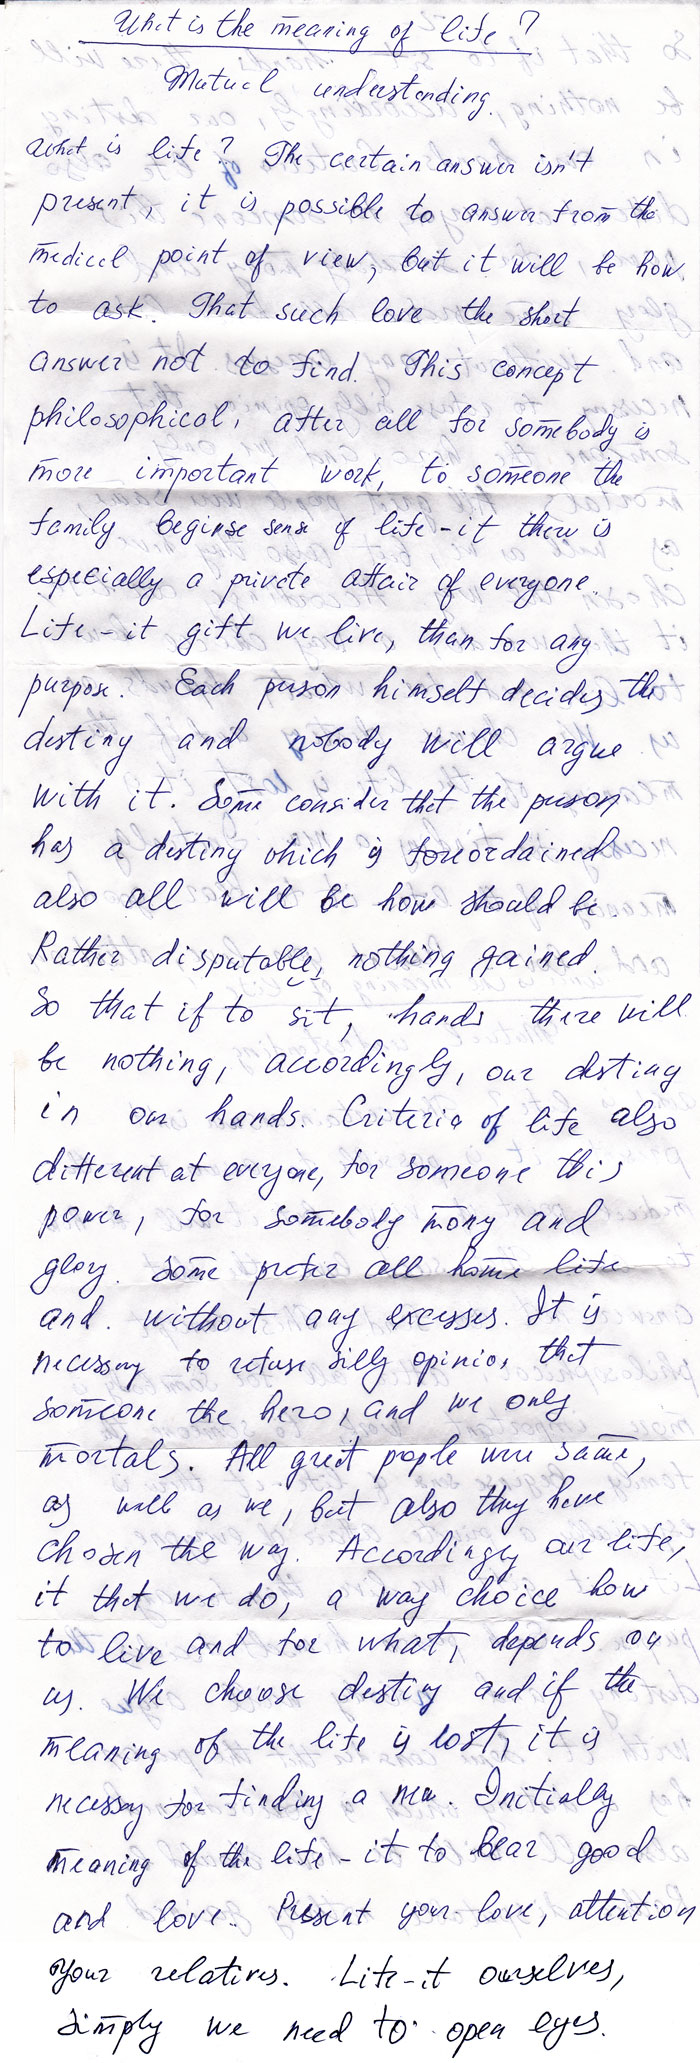 What is the meaning of life?
Mutual understanding.
What is life? The certain answer isn't
present, it is possible to answer from the
medical point of view, but it will be how
to ask. That such love the short
answer not to find. This concept
philosophical, after all for somebody is
more important work, to someone the
family beginse sense of life - it there is
especially a private affair of everyone.
Life - it gift we live, than for any
purpose. Each person himself decides the
destiny and nobody will argue
with it. Some consider that the person
has a destiny which is foreordained
also all will be how should be.
Rather disputable, nothing gained.
So that if to sit, hands there will
be nothing, accordingly, our destiny
in our hands. Criteria of life also
different at everyone, for someone this
power, for somebody mony and
glory. Some prefer all home life
and without any excesses. It is
necessary to refuse silly opinion that
someone the hero, and we only
mortals. All great people were same,
as well as we, but also they have
chosen the way. Accordingly our life,
it that we do, a way choice how
to live and for what, depends on
us. We choose destiny and if the
meaning of the life is lost, it is
necessary for finding a new. Initially
meaning of the life - it to bear good
and love. Present your love, attention
your relatives. Life - it ourselves,
simply we need to open eyes.